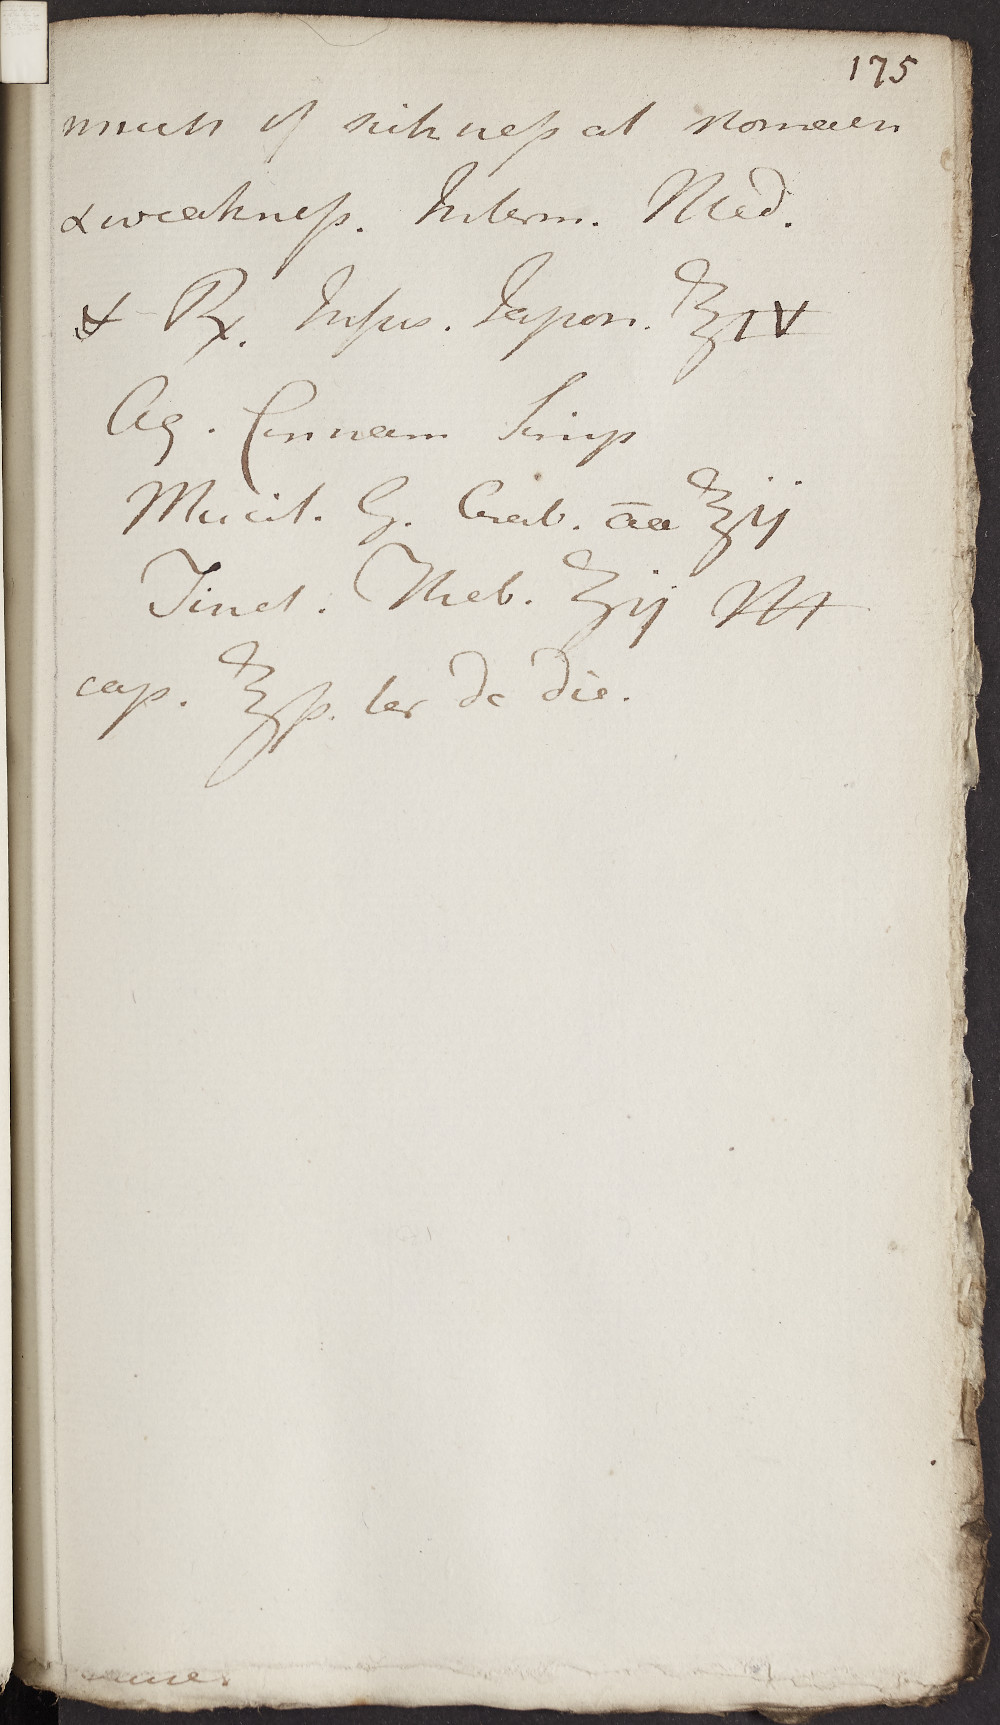 175
much of sickness at stomach
& weakness. Interm. Med.
& ℞. Infus. Japon. ℥IV
Aq. Cinnam Simp
Mucil. G. Arab. āa ℥ij
Tinct. Theb. ʒij M
cap. ℥ß. ter de die.